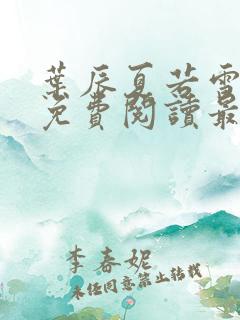 葉辰夏若雪
免費閱讀最
李春妮
未經同意禁止轉載